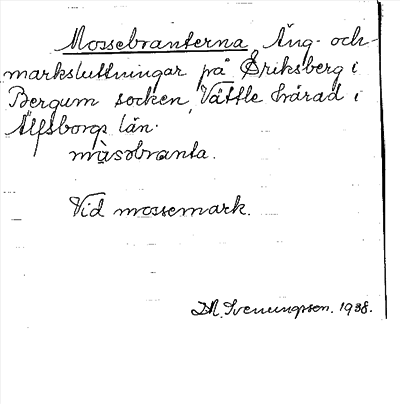 Mossebranterna Äng- och
marksluttningar på Eriksberg i
Bergum socken, Vättle härad i
Älfsborgs län.
mùsəbranta.
Vid mossemark.
D.A. Sveningson. 1938.